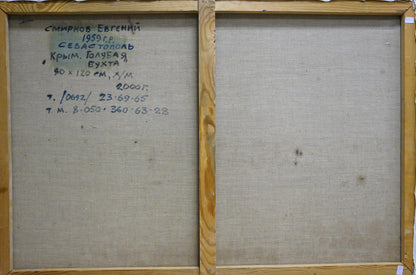 Смирнов Евгений
1959 г.р.
Севастополь
Крым. Голубая
Бухта
90 х 120 см, х/м
2000 г.
т. /0692/ 23-69-65
т. м. 8-050+360-63-28